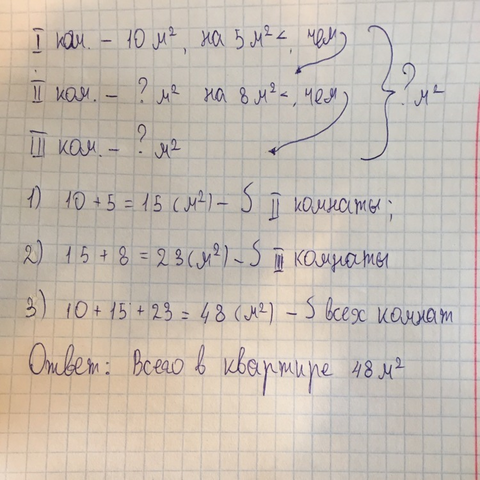 I ком. – 10 м², на 5 м² <, чем
II ком. – ? м² на 8 м² <, чем } ? м²
III ком. – ? м²
1) 10 + 5 = 15 (м²) – S II комнаты;
2) 15 + 8 = 23 (м²) – S III комнаты
3) 10 + 15 + 23 = 48 (м²) – S всех комнат
Ответ: Всего в квартире 48 м²